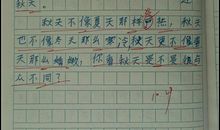 秋天。
秋天不像夏天那样 热，秋天
也不像冬天那么寒冷秋天更不像春
天那么 ，你看秋天是不是与
么不同？